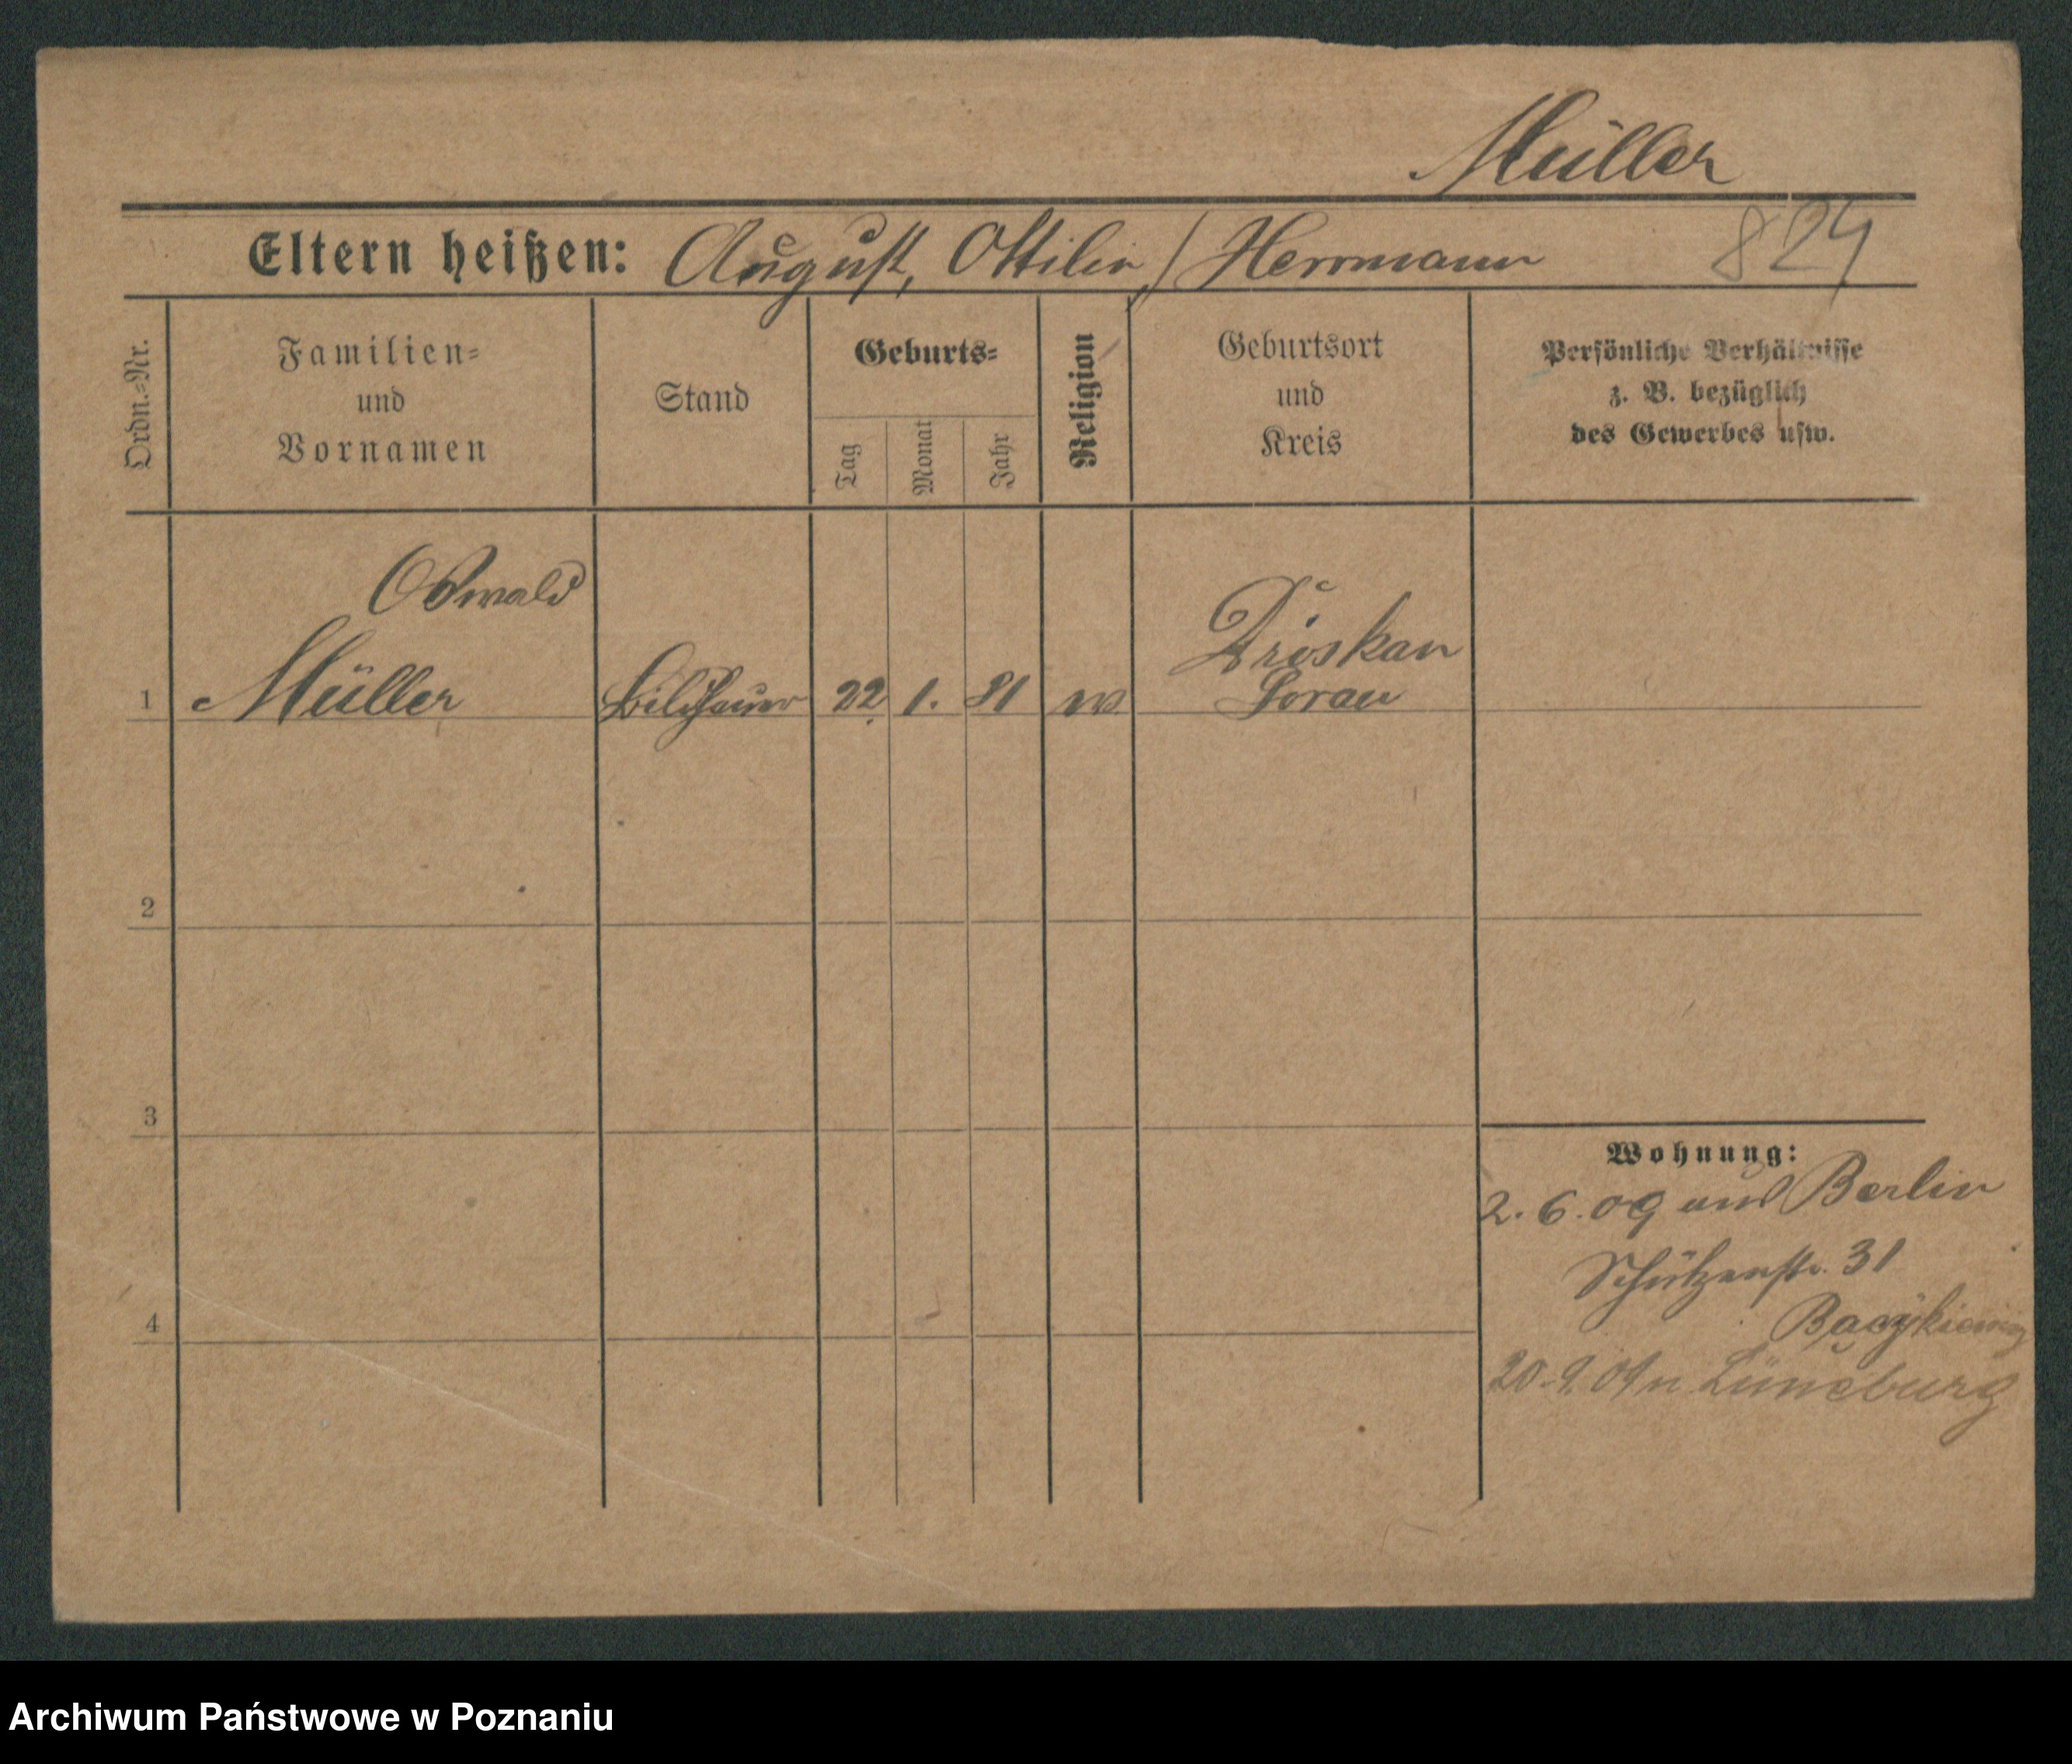 Müller
Eltern heißen: August, Ottilie / Herrmann 824
Ordn.=Nr.
Familien=
und
Vornamen
Stand
Geburts=
Tag
Monat
Jahr
Religion
Geburtsort
und
Kreis
Persönliche Verhältnisse
z. B. bezüglich
des Gewerbes usw.
Oswald
1 Müller Bildhauer 22. 1. 81 ev. Dröskau
Sorau
2
3
4
Wohnung:
2. 6. 09 aus Berlin
Schützenstr. 31
20. 9. 09 n Lüneburg
Archiwum Państwowe w Poznaniu